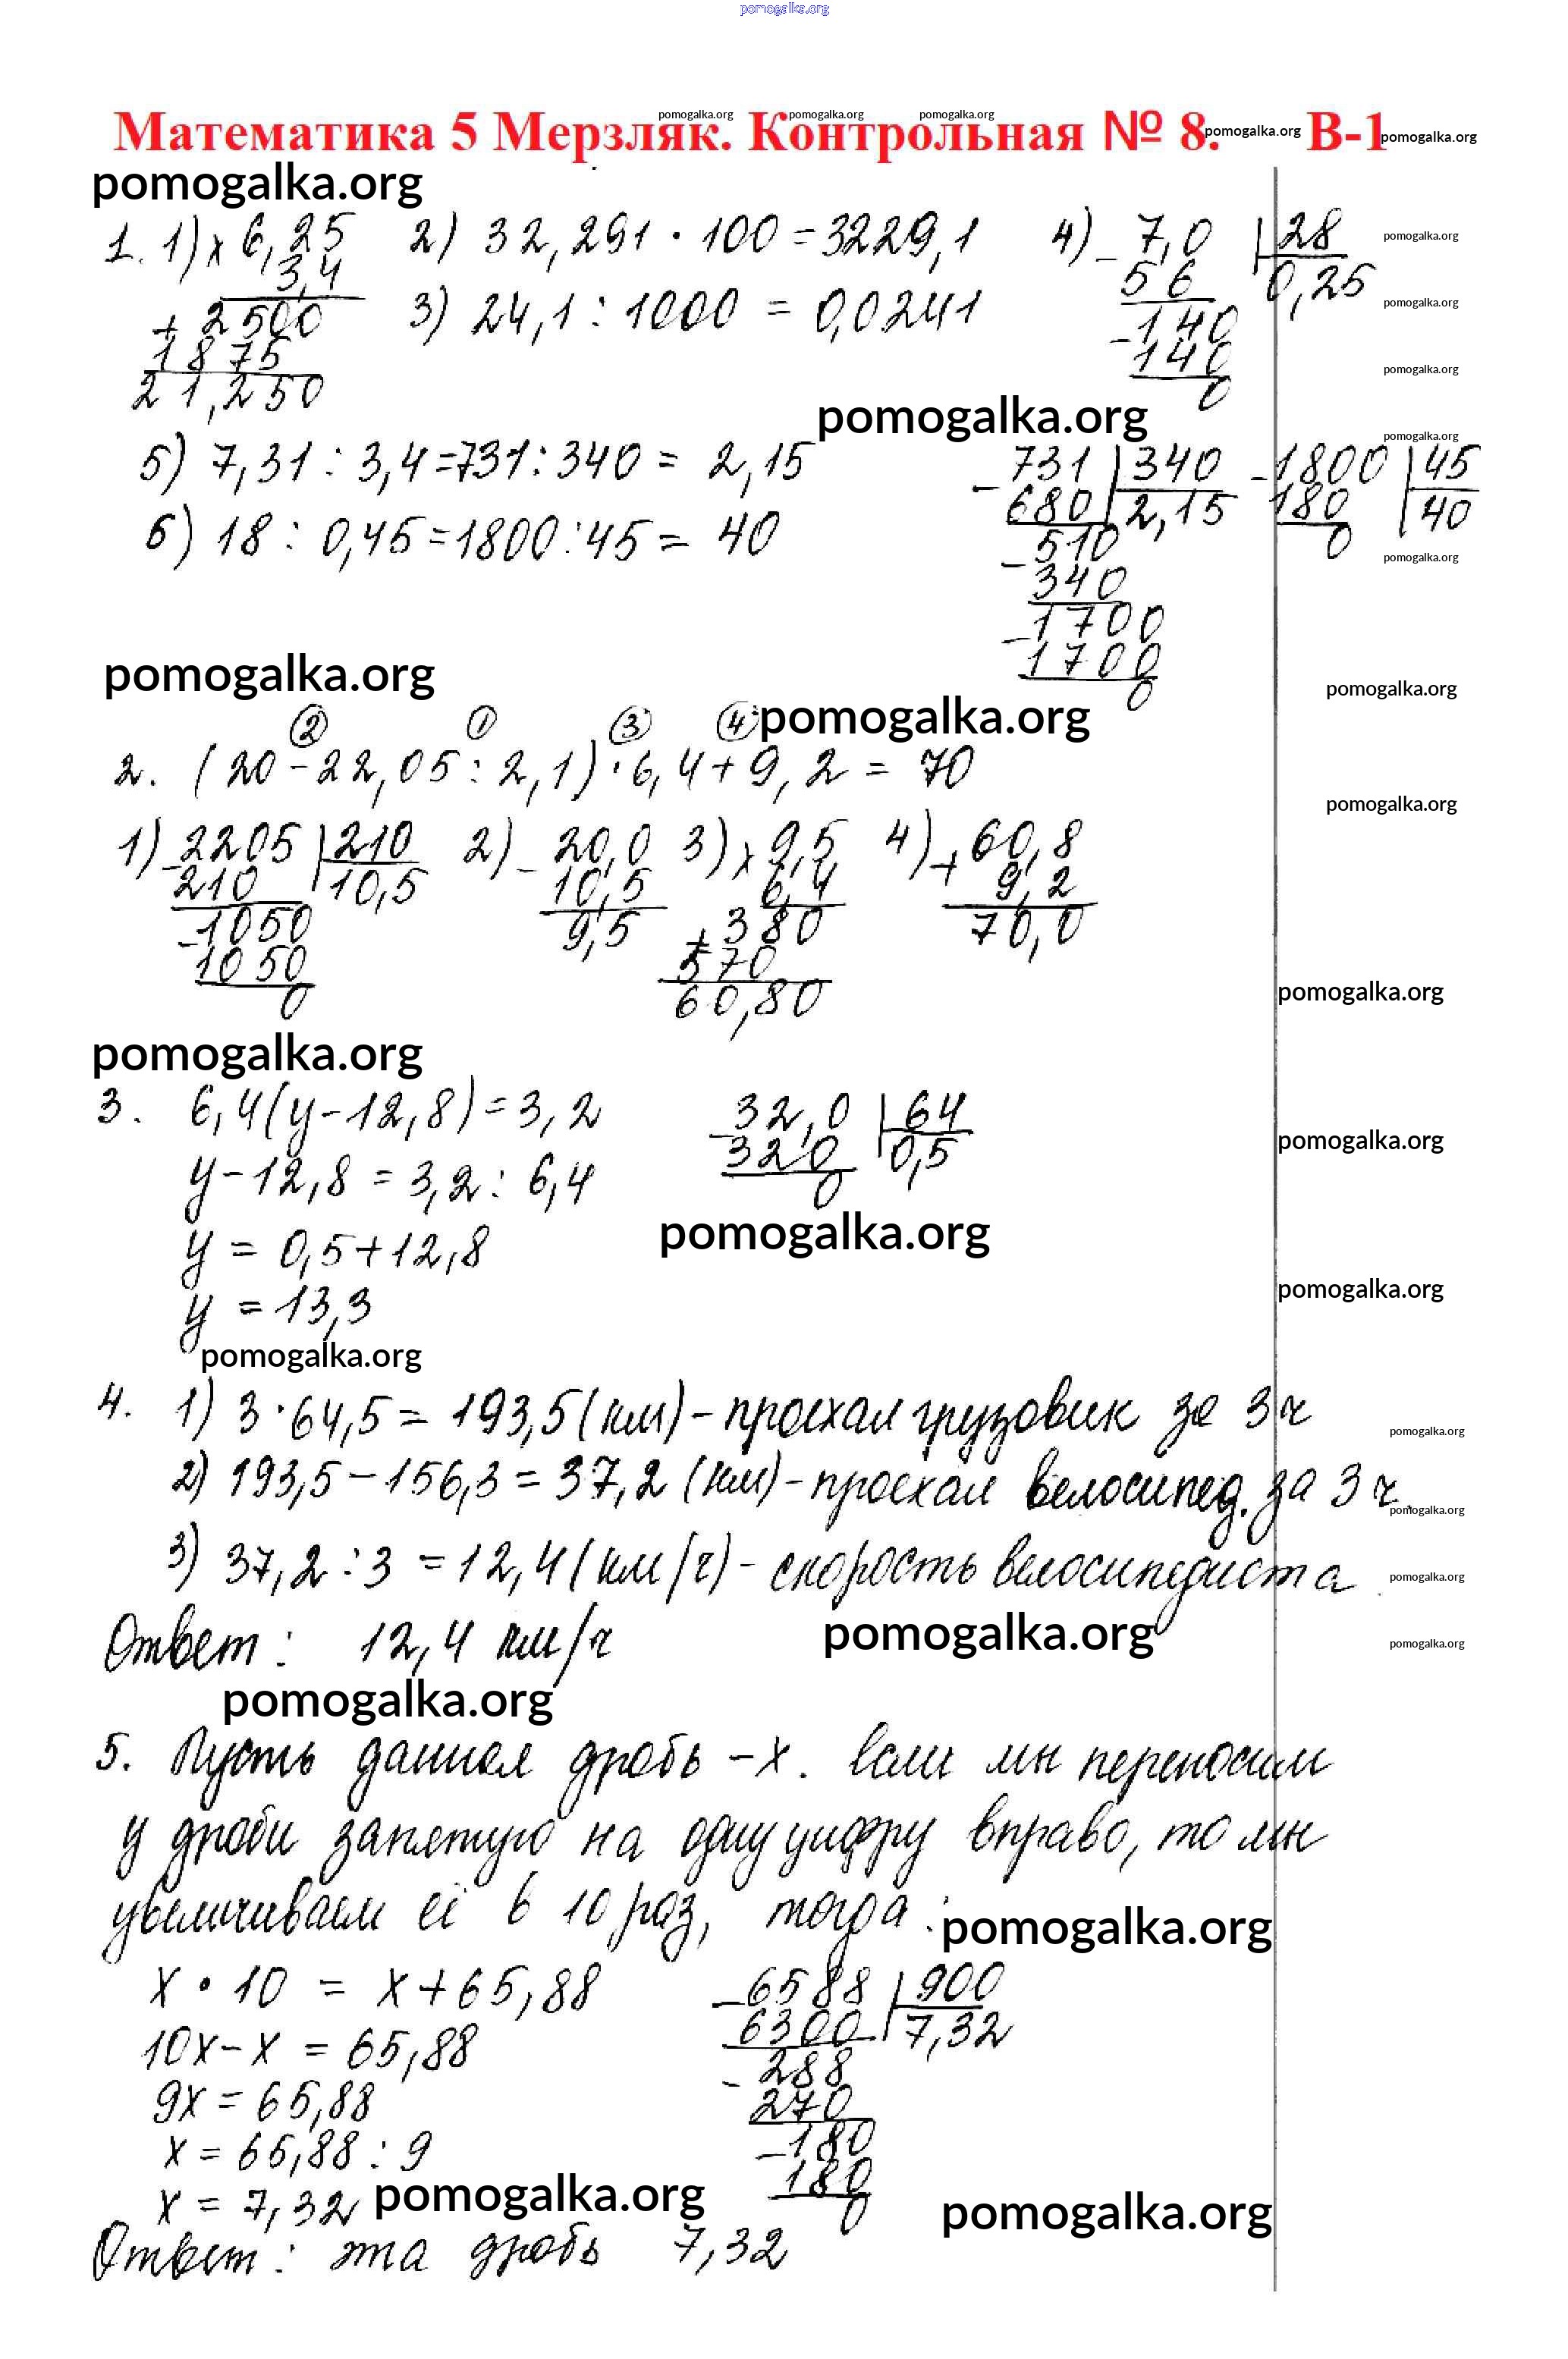 pomogalka.org
pomogalka.org pomogalka.org pomogalka.org
Математика 5 Мерзляк. Контрольная № 8. pomogalka.org В-1 pomogalka.org
pomogalka.org
1. 1) × 6,25
3,4
+ 2500
1875
21,250
2) 32,291 · 100 = 3229,1
3) 24,1 : 1000 = 0,0241
4) - 7,0 28
56 0,25
- 140
140
0
pomogalka.org
pomogalka.org
pomogalka.org
pomogalka.org
pomogalka.org
5) 7,31 : 3,4 = 731 : 340 = 2,15
6) 18 : 0,45 = 1800 : 45 = 40
- 731 340
680 2,15
- 510
340
- 1700
1700
0
- 1800 45
180 40
0
pomogalka.org
pomogalka.org
pomogalka.org
pomogalka.org
② ① ③ ④
2. (20 - 22,05 : 2,1) · 6,4 + 9,2 = 70
pomogalka.org
1) - 2205 210
210 10,5
- 1050
1050
0
2) - 20,0
10,5
9,5
3) × 9,5
6,4
+ 380
570
60,80
4) + 60,8
9,2
70,0
pomogalka.org
pomogalka.org
3. 6,4(y - 12,8) = 3,2
y - 12,8 = 3,2 : 6,4
y = 0,5 + 12,8
y = 13,3
- 32,0 64
320 0,5
0
pomogalka.org
pomogalka.org
pomogalka.org
pomogalka.org
4. 1) 3 · 64,5 = 193,5 (км) - проехал грузовик за 3 ч
pomogalka.org
2) 193,5 - 156,3 = 37,2 (км) - проехал велосипед. за 3 ч.
pomogalka.org
3) 37,2 : 3 = 12,4 (км/ч) - скорость велосипедиста
pomogalka.org
Ответ: 12,4 км/ч
pomogalka.org
pomogalka.org
pomogalka.org
5. Пусть данная дробь - x. Если мы переносим
у дроби запятую на одну цифру вправо, то мы
увеличиваем её в 10 раз, тогда:
pomogalka.org
x · 10 = x + 65,88
10x - x = 65,88
9x = 65,88
x = 65,88 : 9
x = 7,32
- 6588 900
6300 7,32
- 288
270
- 180
180
0
pomogalka.org
pomogalka.org
Ответ: эта дробь 7,32